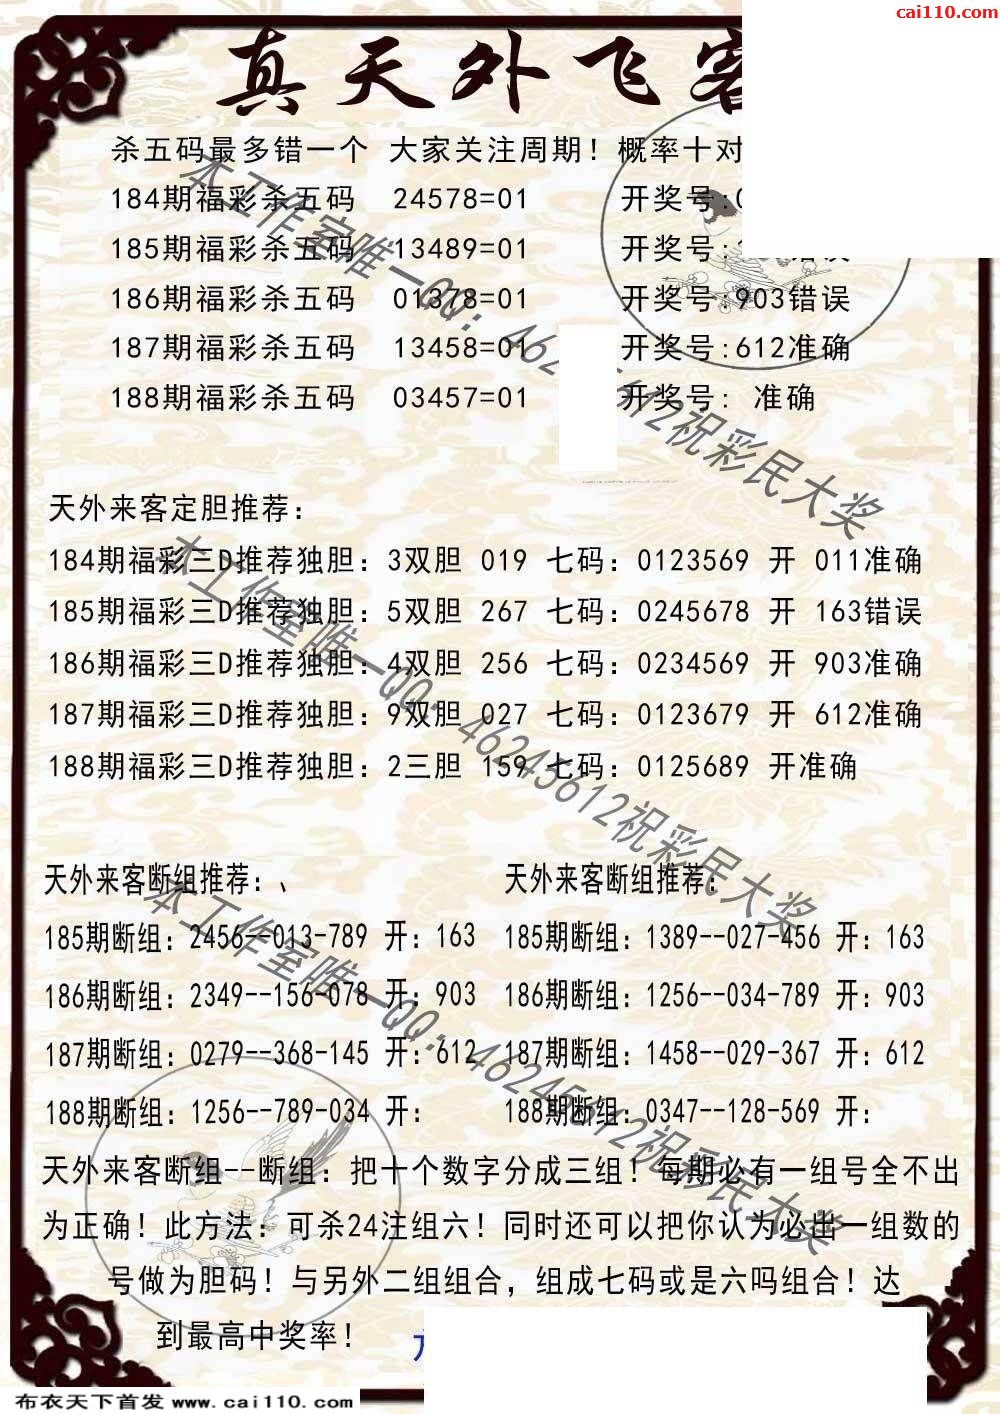 cai110.com
真天外飞客
杀五码最多错一个 大家关注周期！概率十对
184期福彩杀五码 24578=01 开奖号:
185期福彩杀五码 13489=01 开奖号: 错误
186期福彩杀五码 01378=01 开奖号:903错误
187期福彩杀五码 13458=01 开奖号:612准确
188期福彩杀五码 03457=01 开奖号: 准确
天外来客定胆推荐：
184期福彩三D推荐独胆：3双胆 019 七码：0123569 开 011准确
185期福彩三D推荐独胆：5双胆 267 七码：0245678 开 163错误
186期福彩三D推荐独胆：4双胆 256 七码：0234569 开 903准确
187期福彩三D推荐独胆：9双胆 027 七码：0123679 开 612准确
188期福彩三D推荐独胆：2三胆 159 七码：0125689 开准确
天外来客断组推荐：、
185期断组：2456--013-789 开：163
186期断组：2349--156-078 开：903
187期断组：0279--368-145 开：612
188期断组：1256--789-034 开：
天外来客断组推荐：
185期断组：1389--027-456 开：163
186期断组：1256--034-789 开：903
187期断组：1458--029-367 开：612
188期断组：0347--128-569 开：
天外来客断组--断组：把十个数字分成三组！每期必有一组号全不出
为正确！此方法：可杀24注组六！同时还可以把你认为必出一组数的
号做为胆码！与另外二组组合，组成七码或是六吗组合！达
到最高中奖率！
本工作室唯一QQ：462 612祝彩民大奖
本工作室唯一QQ：46245612祝彩民大奖
本工作室唯一QQ：46245612祝彩民大奖
布衣天下首发 www.cai110.com